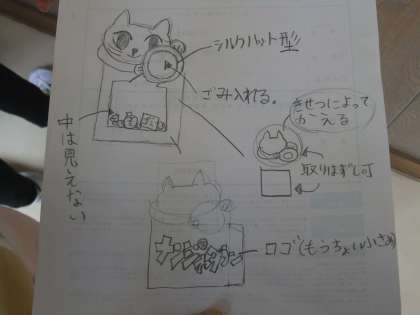 シルクハット型
ごみ入れる。
中は見えない
きせつによって
かえる
取りはずし可
ロゴ(もうちょい小さめ)